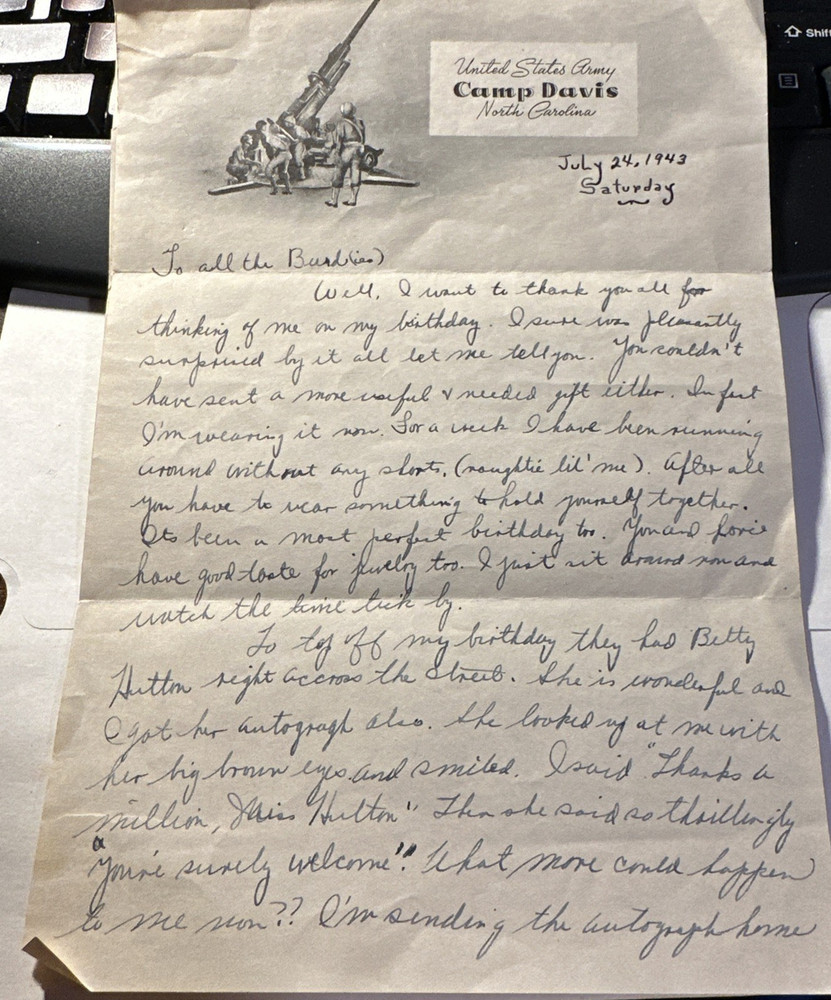 Shift
United States Army
Camp Davis
North Carolina
July 24, 1943
Saturday
To all the Burd(ies)
Well, I want to thank you all for
thinking of me on my birthday. I sure was pleasantly
surprised by it all let me tell you. You couldn't
have sent a more useful & needed gift either. In fact
I'm wearing it now. For a week I have been running
around without any shorts, (naughtie lil' me). After all
you have to wear something to hold yourself together.
Its been a most perfect birthday too. You and
have good taste for jewelry too. I just sit around now and
watch the time tick by.
To top off my birthday they had Betty
Hutton right accross the street. She is wonderful and
I got her autograph also. She looked up at me with
her big brown eyes and smiled. I said "Thanks a
million, Miss Hutton" Then she said so thrillingly
"You're surely welcome"! What more could happen
to me now?? I'm sending the autograph home